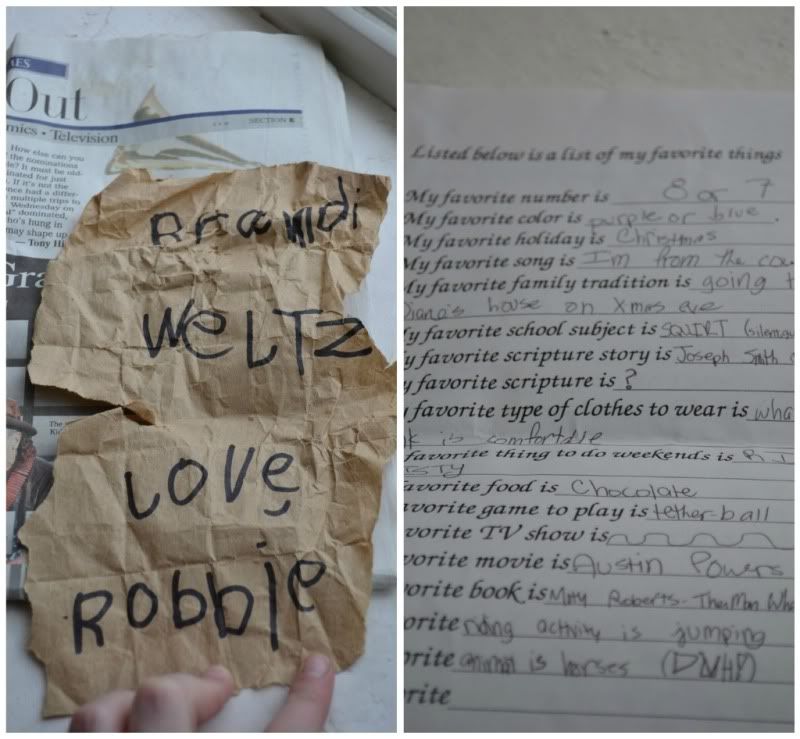 RES
Out
mics • Television
SECTION E
How else can you
the nominations
de? It must be old-
inated for just
If it's not the
once had a differ-
multiple trips to
Wednesday on
" dominated,
who's hung in
may shape up
— Tony Hi
Gra
The
Kid
Brandi
WeLTz
Love
Robbie
Listed below is a list of my favorite things
My favorite number is 8 or 7
My favorite color is purple or blue.
My favorite holiday is Christmas
My favorite song is I'm from the cou
My favorite family tradition is going t
Diana's house on Xmas eve
y favorite school subject is SQUIRT (silent
y favorite scripture story is Joseph Smith
y favorite scripture is ?
y favorite type of clothes to wear is wha
k is comfortable
favorite thing to do weekends is R.J.
favorite food is Chocolate
avorite game to play is tether-ball
vorite TV show is
vorite movie is Austin Powers
orite book is Monty Roberts - The Man Who
orite riding activity is jumping
rite animal is horses (DNHP)
rite